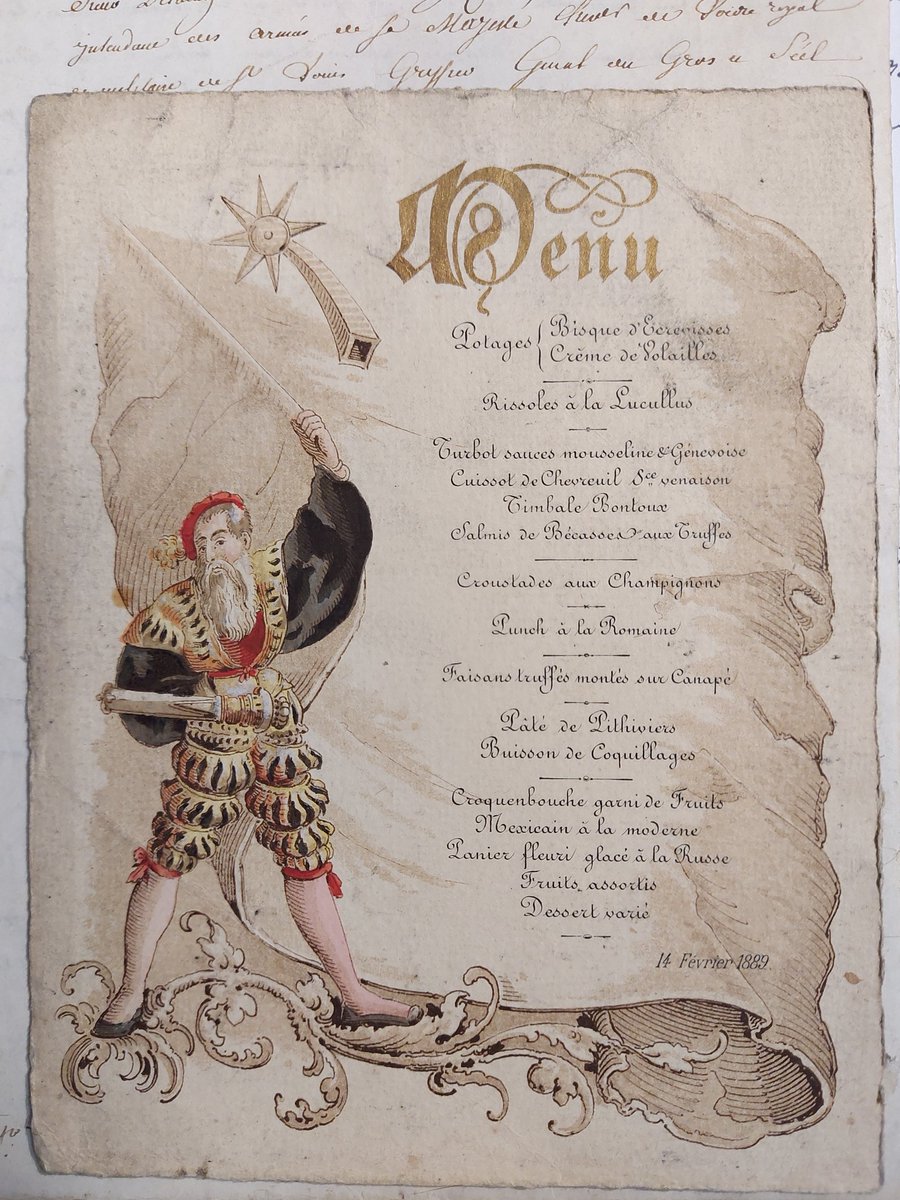 intendant des armées de sa Majesté
de St Louis
Menu
Potages { Bisque d'Ecrevisses
Crême de Volailles
Rissoles à la Lucullus
Turbot sauces mousseline & Génevoise
Cuissot de Chevreuil Sce venaison
Timbale Bontoux
Salmis de Bécasses aux Truffes
Croustades aux Champignons
Punch à la Romaine
Faisans truffés montés sur Canapé
Pâté de Pithiviers
Buisson de Coquillages
Croquenbouche garni de Fruits
Mexicain à la moderne
Panier fleuri glacé à la Russe
Fruits assortis
Dessert varié
14 Février 1889